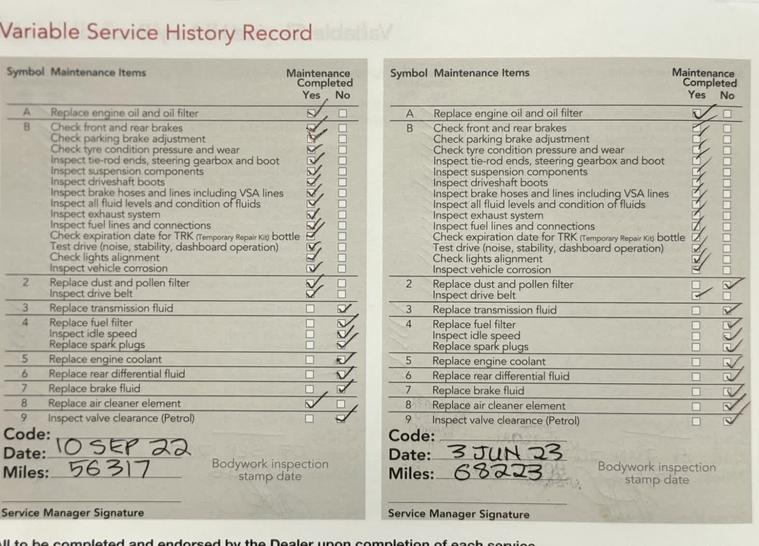 Variable Service History Record
Symbol Maintenance Items Maintenance Completed Yes No
A Replace engine oil and oil filter
B Check front and rear brakes
Check parking brake adjustment
Check tyre condition pressure and wear
Inspect tie-rod ends, steering gearbox and boot
Inspect suspension components
Inspect driveshaft boots
Inspect brake hoses and lines including VSA lines
Inspect all fluid levels and condition of fluids
Inspect exhaust system
Inspect fuel lines and connections
Check expiration date for TRK (Temporary Repair Kit) bottle
Test drive (noise, stability, dashboard operation)
Check lights alignment
Inspect vehicle corrosion
2 Replace dust and pollen filter
Inspect drive belt
3 Replace transmission fluid
4 Replace fuel filter
Inspect idle speed
Replace spark plugs
5 Replace engine coolant
6 Replace rear differential fluid
7 Replace brake fluid
8 Replace air cleaner element
9 Inspect valve clearance (Petrol)
Code:
Date: 10 SEP 22
Miles: 56317
Bodywork inspection
stamp date
Service Manager Signature
Symbol Maintenance Items Maintenance Completed Yes No
A Replace engine oil and oil filter
B Check front and rear brakes
Check parking brake adjustment
Check tyre condition pressure and wear
Inspect tie-rod ends, steering gearbox and boot
Inspect suspension components
Inspect driveshaft boots
Inspect brake hoses and lines including VSA lines
Inspect all fluid levels and condition of fluids
Inspect exhaust system
Inspect fuel lines and connections
Check expiration date for TRK (Temporary Repair Kit) bottle
Test drive (noise, stability, dashboard operation)
Check lights alignment
Inspect vehicle corrosion
2 Replace dust and pollen filter
Inspect drive belt
3 Replace transmission fluid
4 Replace fuel filter
Inspect idle speed
Replace spark plugs
5 Replace engine coolant
6 Replace rear differential fluid
7 Replace brake fluid
8 Replace air cleaner element
9 Inspect valve clearance (Petrol)
Code:
Date: 3 JUN 23
Miles: 68223
Bodywork inspection
stamp date
Service Manager Signature
All to be completed and endorsed by the Dealer upon completion of each service